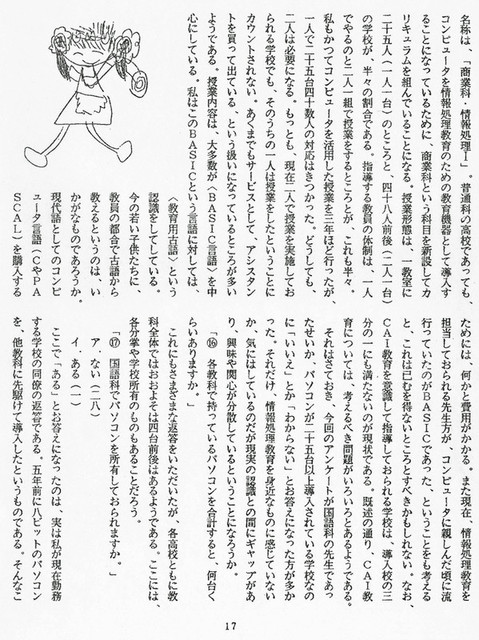 名称は、「商業科・情報処理Ⅰ」。普通科の高校であっても、
コンピュータを情報処理教育のための教育機器として導入す
ることになっているために、商業科という科目を新設してカ
リキュラムを組んでいることになる。授業形態は、一教室に
二十五人（一人一台）のところと、四十八人前後（二人一台）
の学校が、半々の割合である。指導する教員の体制は、一人
でやるのと二人一組で授業をするところとが、これも半々。
私もかつてコンピュータを活用した授業を三年ほど行ったが、
一人で二十五台四十数人の対応はきつかった。どうしても、
二人は必要になる。もっとも、現在二人で授業を実施してお
られる学校でも、そのうちの一人は授業をしたということに
カウントされない。あくまでもサービスとして、アシスタン
トを買って出ている、という扱いになっているところが多い
ようである。授業内容は、大多数が〈BASIC言語〉を中
心にしている。私はこのBASICという言語に対しては、
〈教育用古語〉という
認識をしてしている。
今の若い子供たちに、
教員の都合で古語から
教えるというのは、い
かがなものであろうか。
現代語としてのコンピ
ュータ言語（CやPA
SCAL）を購入する
ためには、何かと費用がかかる。また現在、情報処理教育を
担当しておられる先生方が、コンピュータに親しんだ頃に流
行っていたのがBASICであった、ということをも考える
と、これは已むを得ないところとすべきかもしれない。なお、
CAI教育を意識して指導しておられる学校は、導入校の三
分の一にも満たないのが現状である。既述の通り、CAI教
育については、考えるべき問題がいろいろとあるようである。
それはさておき、今回のアンケートが国語科の先生であっ
たせいか、パソコンが二十五台以上導入されている学校なの
に「いいえ」とか「わからない」とお答えになった方が多か
った。それだけ、情報処理教育を身近なものに感じていない
か、気にはしているのだが現実の認識との間にギャップがあ
り、興味や関心が分散しているということになろうか。
「⑯　各教科で持っているパソコンを合計すると、何台く
らいありますか。」
これにもさまざまな返答をいただいたが、各高校ともに教
科全体ではおおよそは四台前後はあるようである。ここには、
各分掌や学校所有のものもあることだろう。
「⑰　国語科でパソコンを所有しておられますか。」
ア．ない（二八）
イ．ある（一）
ここで「ある」とお答えになったのは、実は私が現在勤務
する学校の同僚の返答である。五年前に八ビットのパソコン
を、他教科に先駆けて導入したというものである。そんなこ
17